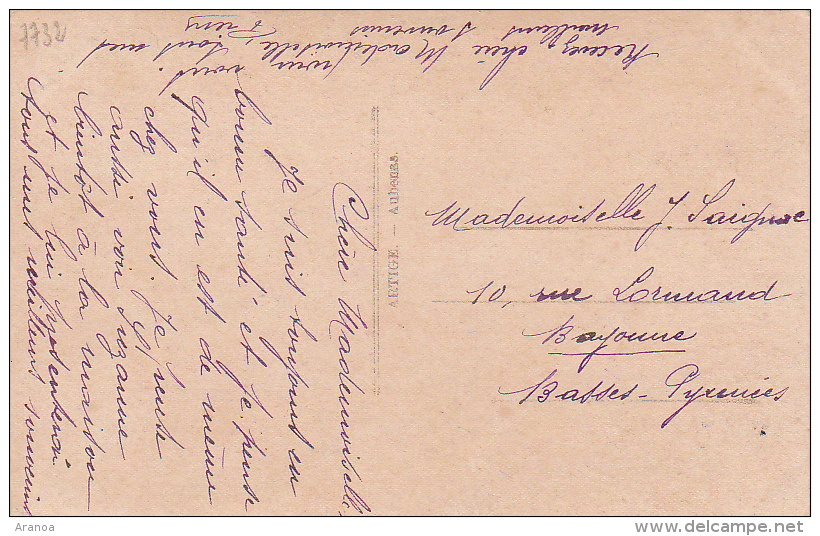 7732
Chère Mademoiselle,
Je suis toujours en
bonne santé et je pense
qu'il en est de même
chez vous. Je
aussi voir Suzanne
bientôt à la maison
et je lui
tous mes meilleurs souvenirs
Recevez, chère Mademoiselle,
meilleurs souvenirs
ARTIGE. — Aubenas.
Mademoiselle J. Saignac
10, rue Lormand
Bayonne
Basses-Pyrénées
Aranoa
delcampe.net